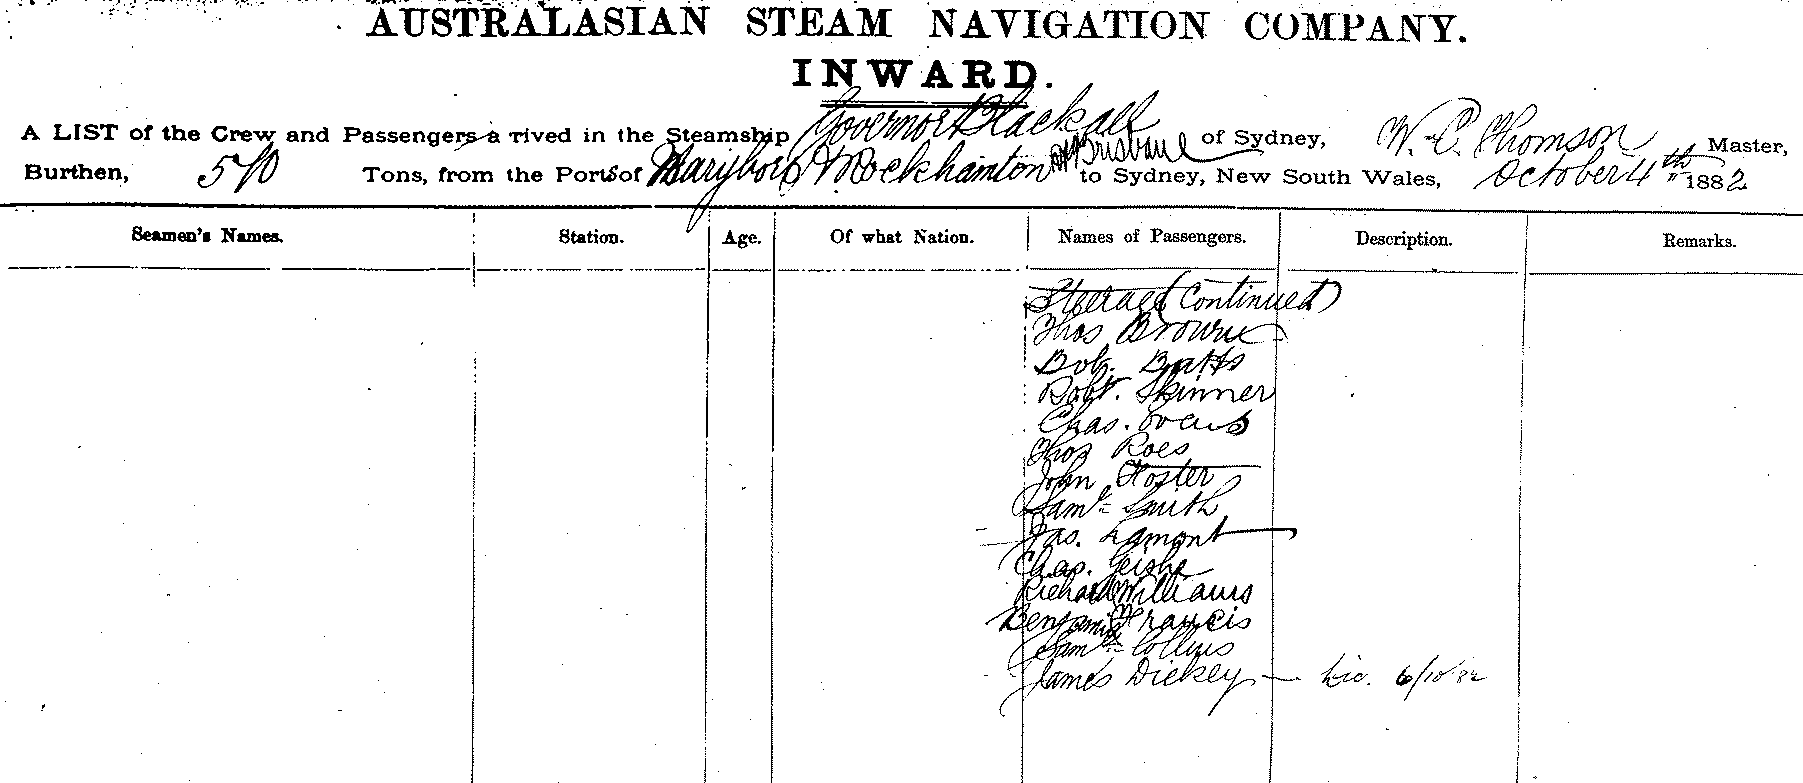 AUSTRALASIAN STEAM NAVIGATION COMPANY.
INWARD.
A LIST of the Crew and Passengers a rived in the Steamship Governor Blackall of Sydney, W. C. Thomson Master,
Burthen, 590 Tons, from the Ports of Maryboro Rockhamton & Brisbane to Sydney, New South Wales, October 4th 1882
Seamen's Names. Station. Age. Of what Nation. Names of Passengers. Description. Remarks.
Steerage (Continued)
Thos Brown
Bob. Batts
Robt. Skinner
Chas.
Thos Roes
John Foster
Saml Smith
Jas. Lamont
Chas.
Richard Williams
Benjamin Francis
Saml Collins
James Dickey — 6/10 82